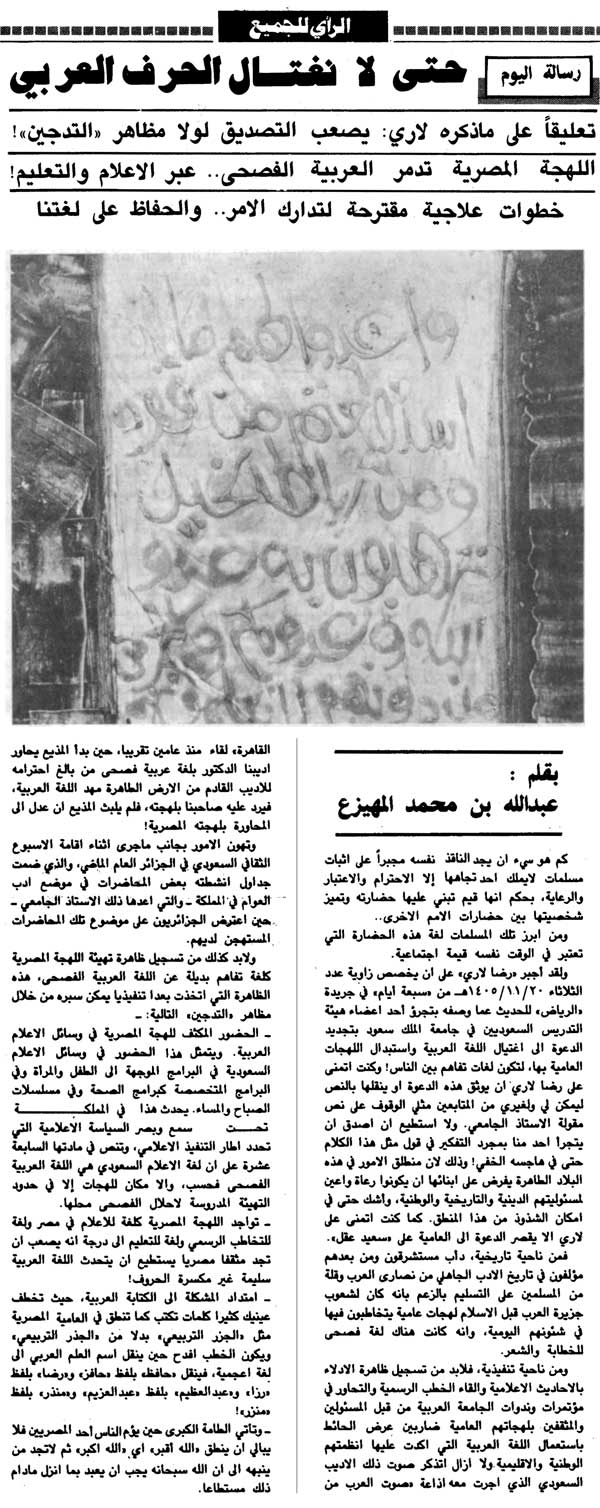 الرأي للجميع
رسالة اليوم
حتى لا نغتال الحرف العربي
تعليقاً على ماذكره لاري: يصعب التصديق لولا مظاهر «التدجين»!
اللهجة المصرية تدمر العربية الفصحى.. عبر الاعلام والتعليم!
خطوات علاجية مقترحة لتدارك الامر.. والحفاظ على لغتنا
واعدوا لهم ما
استطعتم من قوة
ومن رباط الخيل
ترهبون به عدو
الله وعدوكم
بقلم :
عبدالله بن محمد المهيزع
كم هو سيء ان يجد الناقد نفسه مجبراً على اثبات
مسلمات لايملك احد تجاهها إلا الاحترام والاعتبار
والرعاية، بحكم انها قيم تبني عليها حضارته وتميز
شخصيتها بين حضارات الامم الاخرى..
ومن ابرز تلك المسلمات لغة هذه الحضارة التي
تعتبر في الوقت نفسه قيمة اجتماعية.
ولقد أجبر «رضا لاري» على ان يخصص زاوية عدد
الثلاثاء ١٤٠٥/١١/٢٠هـ من «سبعة أيام» في جريدة
«الرياض» للحديث عما وصفه بتجرؤ أحد أعضاء هيئة
التدريس السعوديين في جامعة الملك سعود بتجديد
الدعوة الى اغتيال اللغة العربية واستبدال اللهجات
العامية بها، لتكون لغات تفاهم بين الناس! وكنت اتمنى
على رضا لاري ان يوثق هذه الدعوة او ينقلها بالنص
ليمكن لي ولغيري من المتابعين مثلي الوقوف على نص
مقولة الاستاذ الجامعي. ولا استطيع ان اصدق ان
يتجرأ احد منا بمجرد التفكير في قول مثل هذا الكلام
حتى في هاجسه الخفي! وذلك لان منطلق الامور في هذه
البلاد الطاهرة يفرض على ابنائها ان يكونوا رعاة واعين
لمسئوليتهم الدينية والتاريخية والوطنية، وأشك حتى في
امكان الشذوذ من هذا المنطق. كما كنت اتمنى على
لاري الا يقصر الدعوة الى العامية على «سعيد عقل».
فمن ناحية تاريخية، دأب مستشرقون ومن بعدهم
مؤلفون في تاريخ الادب الجاهلي من نصارى العرب وقلة
من المسلمين على التسليم بالزعم بانه كان لشعوب
جزيرة العرب قبل الاسلام لهجات عامية يتخاطبون فيها
في شئونهم اليومية، وانه كانت هناك لغة فصحى
للخطابة والشعر.
ومن ناحية تنفيذية، فلابد من تسجيل ظاهرة الادلاء
بالاحاديث الاعلامية والقاء الخطب الرسمية والتحاور في
مؤتمرات وندوات الجامعة العربية من قبل المسئولين
والمثقفين بلهجاتهم العامية ضاربين عرض الحائط
باستعمال اللغة العربية التي اكدت عليها انظمتهم
الوطنية والاقليمية ولا أزال اتذكر صوت ذلك الاديب
السعودي الذي اجرت معه اذاعة «صوت العرب من
القاهرة» لقاء منذ عامين تقريبا، حين بدأ المذيع يحاور
اديبنا الدكتور بلغة عربية فصحى من بالغ احترامه
للأديب القادم من الارض الطاهرة مهد اللغة العربية،
فيرد عليه صاحبنا بلهجته، فلم يلبث المذيع ان عدل الى
المحاورة بلهجته المصرية!
وتهون الامور بجانب ماجرى أثناء اقامة الاسبوع
الثقافي السعودي في الجزائر العام الماضي، والذي ضمت
جداول انشطته بعض المحاضرات في موضع ادب
العوام في المملكة ـ والتي اعدها ذلك الاستاذ الجامعي ـ
حين اعترض الجزائريون على موضوع تلك المحاضرات
المستهجن لديهم.
ولابد كذلك من تسجيل ظاهرة تهيئة اللهجة المصرية
كلغة تفاهم بديلة عن اللغة العربية الفصحى، هذه
الظاهرة التي اتخذت بعدا تنفيذيا يمكن سبره من خلال
مظاهر «التدجين» التالية:
ـ الحضور المكثف للهجة المصرية في وسائل الاعلام
العربية. ويتمثل هذا الحضور في وسائل الاعلام
السعودية في البرامج الموجهة الى الطفل والمرأة وفي
البرامج المتخصصة كبرامج الصحة وفي مسلسلات
الصباح والمساء. يحدث هذا في المملكـــــــــة
تحـــت سمع وبصر السياسة الاعلامية التي
تحدد اطار التنفيذ الاعلامي، وتنص في مادتها السابعة
عشرة على ان لغة الاعلام السعودي هي اللغة العربية
الفصحى فحسب، والا مكان للهجات إلا في حدود
التهيئة المدروسة لاحلال الفصحى محلها.
ـ تواجد اللهجة المصرية كلغة للاعلام في مصر ولغة
للتخاطب الرسمي ولغة للتعليم الى درجة انه يصعب ان
تجد مثقفا مصريا يستطيع ان يتحدث اللغة العربية
سليمة غير مكسرة الحروف!
ـ امتداد المشكلة الى الكتابة العربية، حيث تخطف
عينيك كثيرا كلمات تكتب كما تنطق في العامية المصرية
مثل «الجزر التربيعي» بدلا من «الجذر التربيعي»
ويكون الخطب افدح حين ينقل اسم العلم العربي الى
لغة اعجمية، فينقل «حافظ» بلفظ «حافز» و«رضا» بلفظ
«رزا» و«عبدالعظيم» بلفظ «عبدالعزيم» و«منذر» بلفظ
«منزر»!
ـ وتأتي الطامة الكبرى حين يؤم الناس أحد المصريين فلا
يبالي ان ينطق «الله أقبر» اي «الله اكبر» ثم لاتجد من
ينبهه الى ان الله سبحانه يجب ان يعبد بما انزل مادام
ذلك مستطاعا.